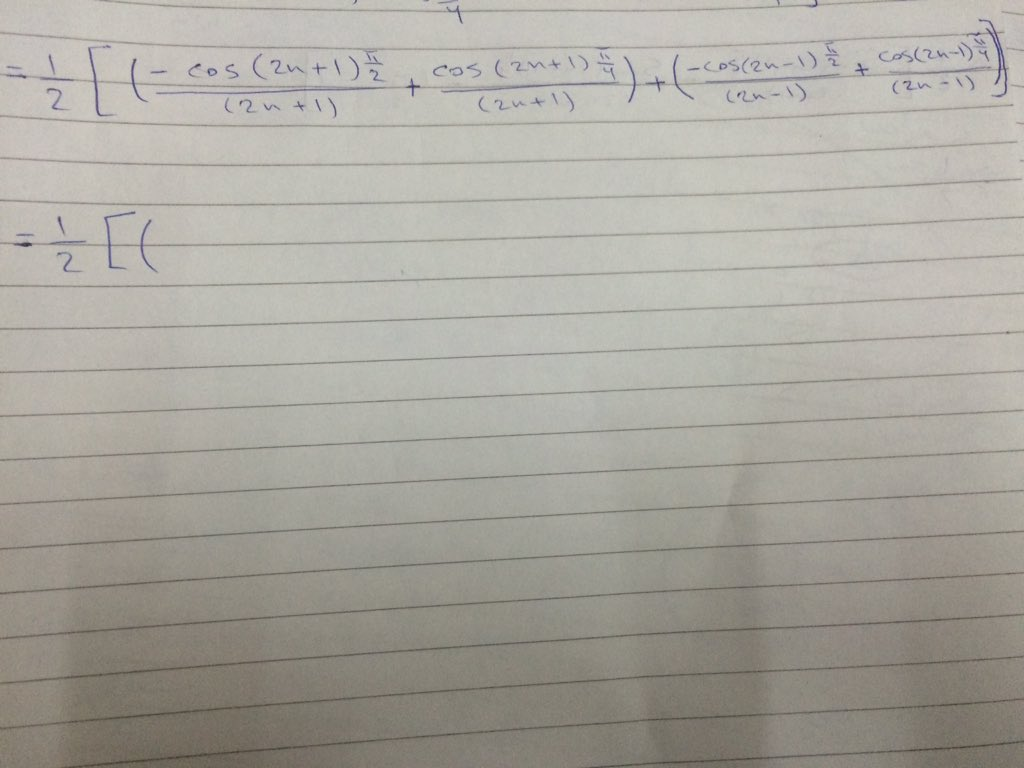 π/4
= 1/2 [ ( -cos(2n+1)π/2 / (2n+1) + cos(2n+1)π/4 / (2n+1) ) + ( -cos(2n-1)π/2 / (2n-1) + cos(2n-1)π/4 / (2n-1) ) ]
= 1/2 [ (